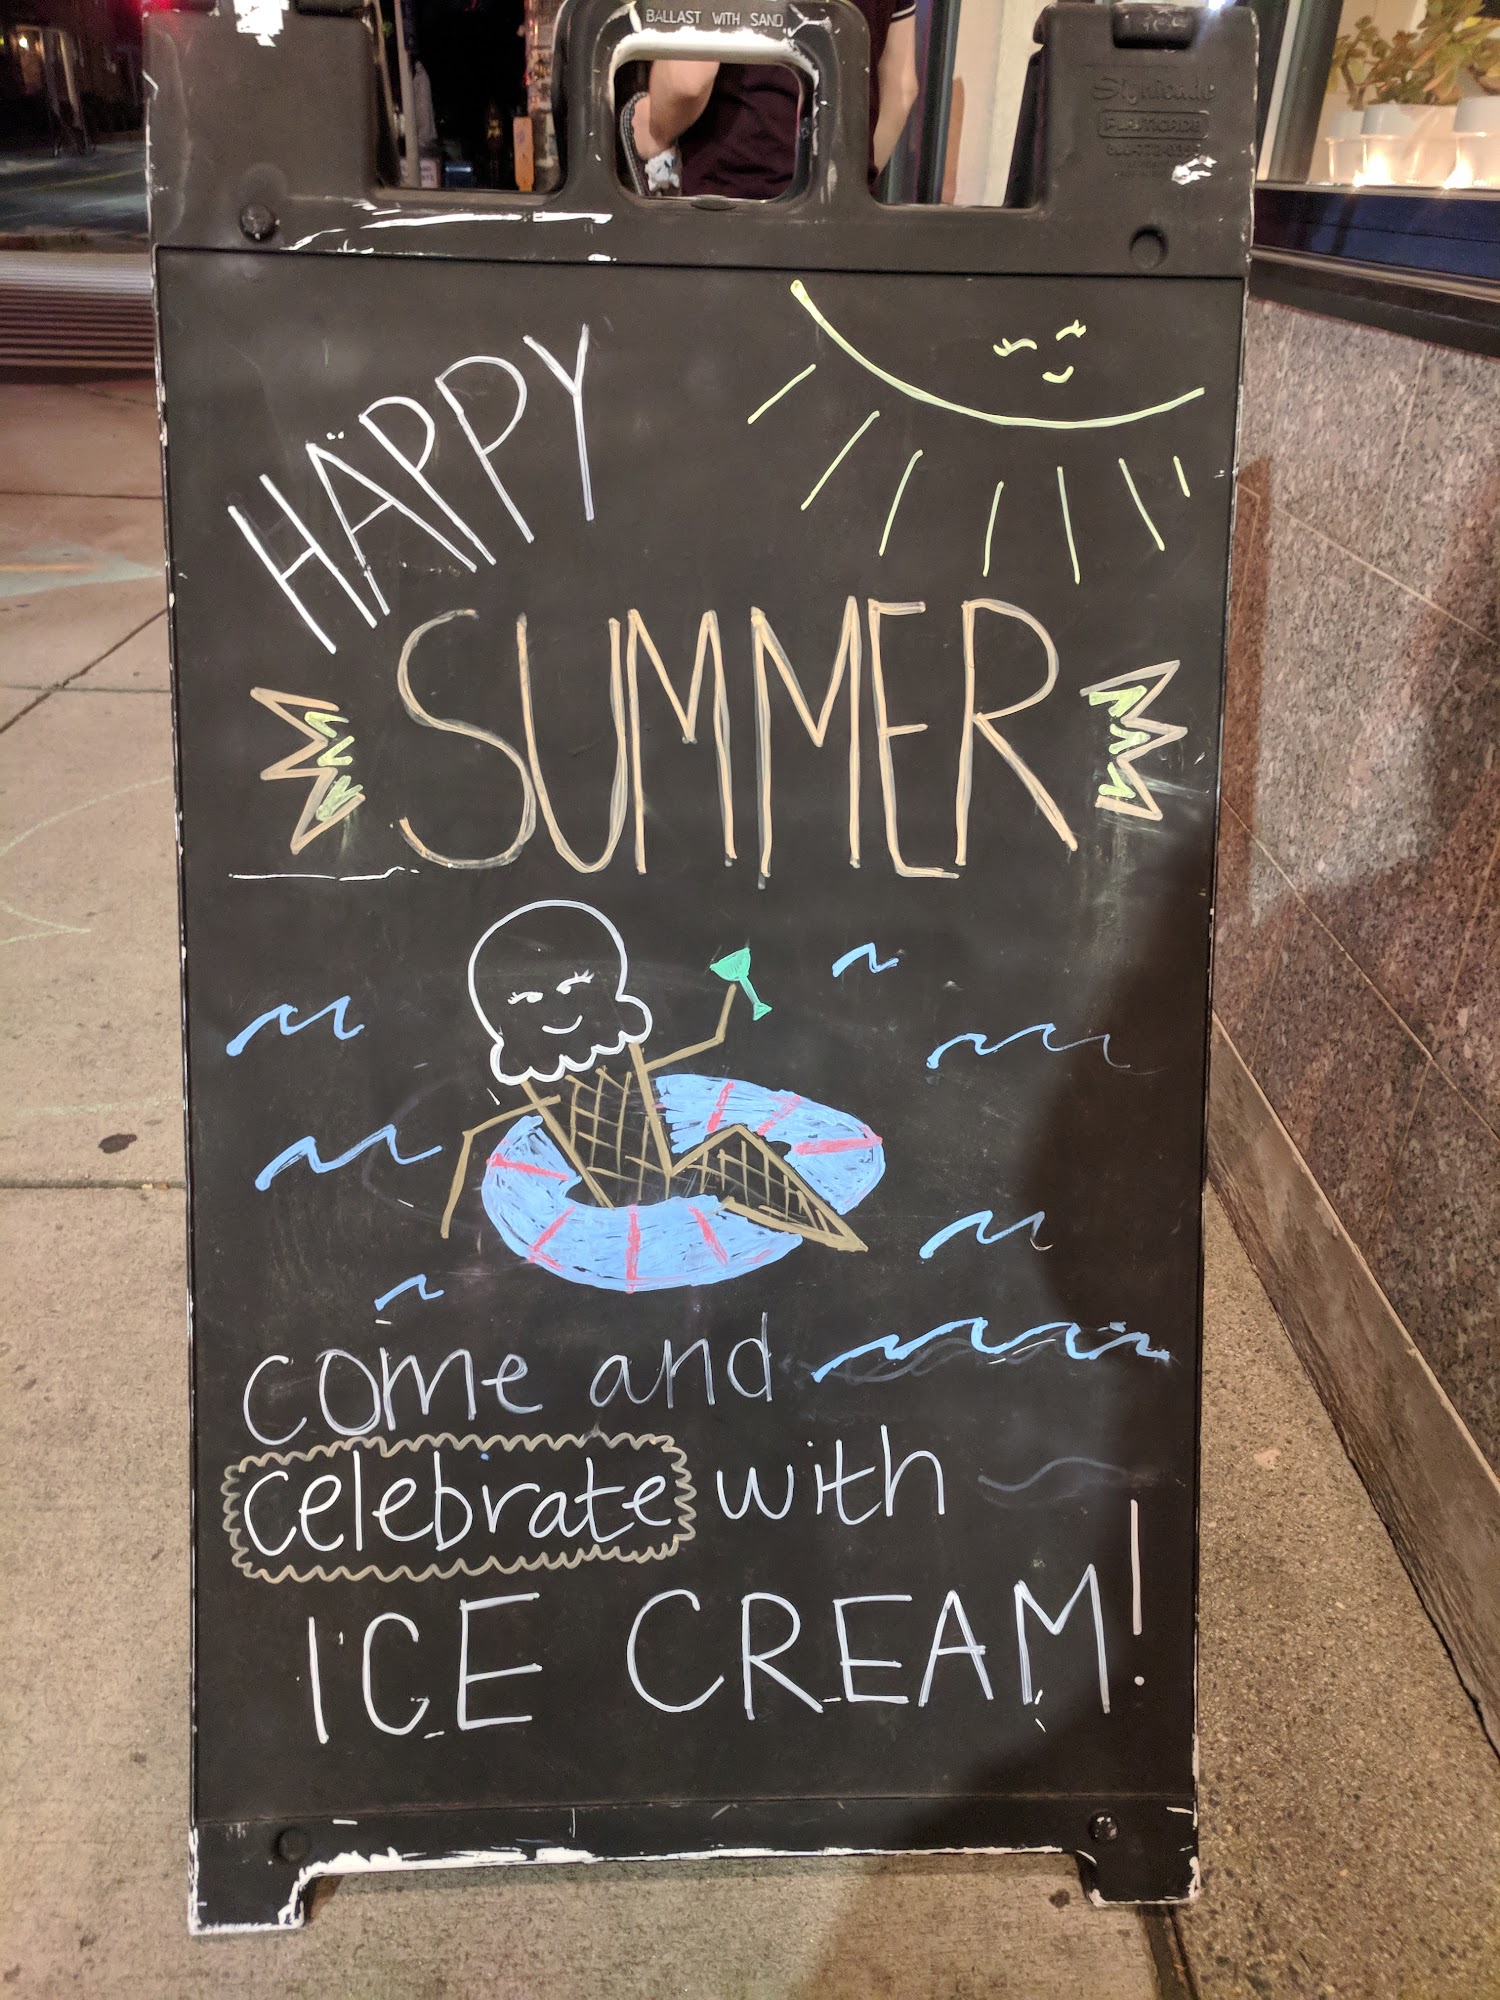 BALLAST WITH SAND
Signicade
PLASTICADE
HAPPY
SUMMER
come and
celebrate with
ICE CREAM!